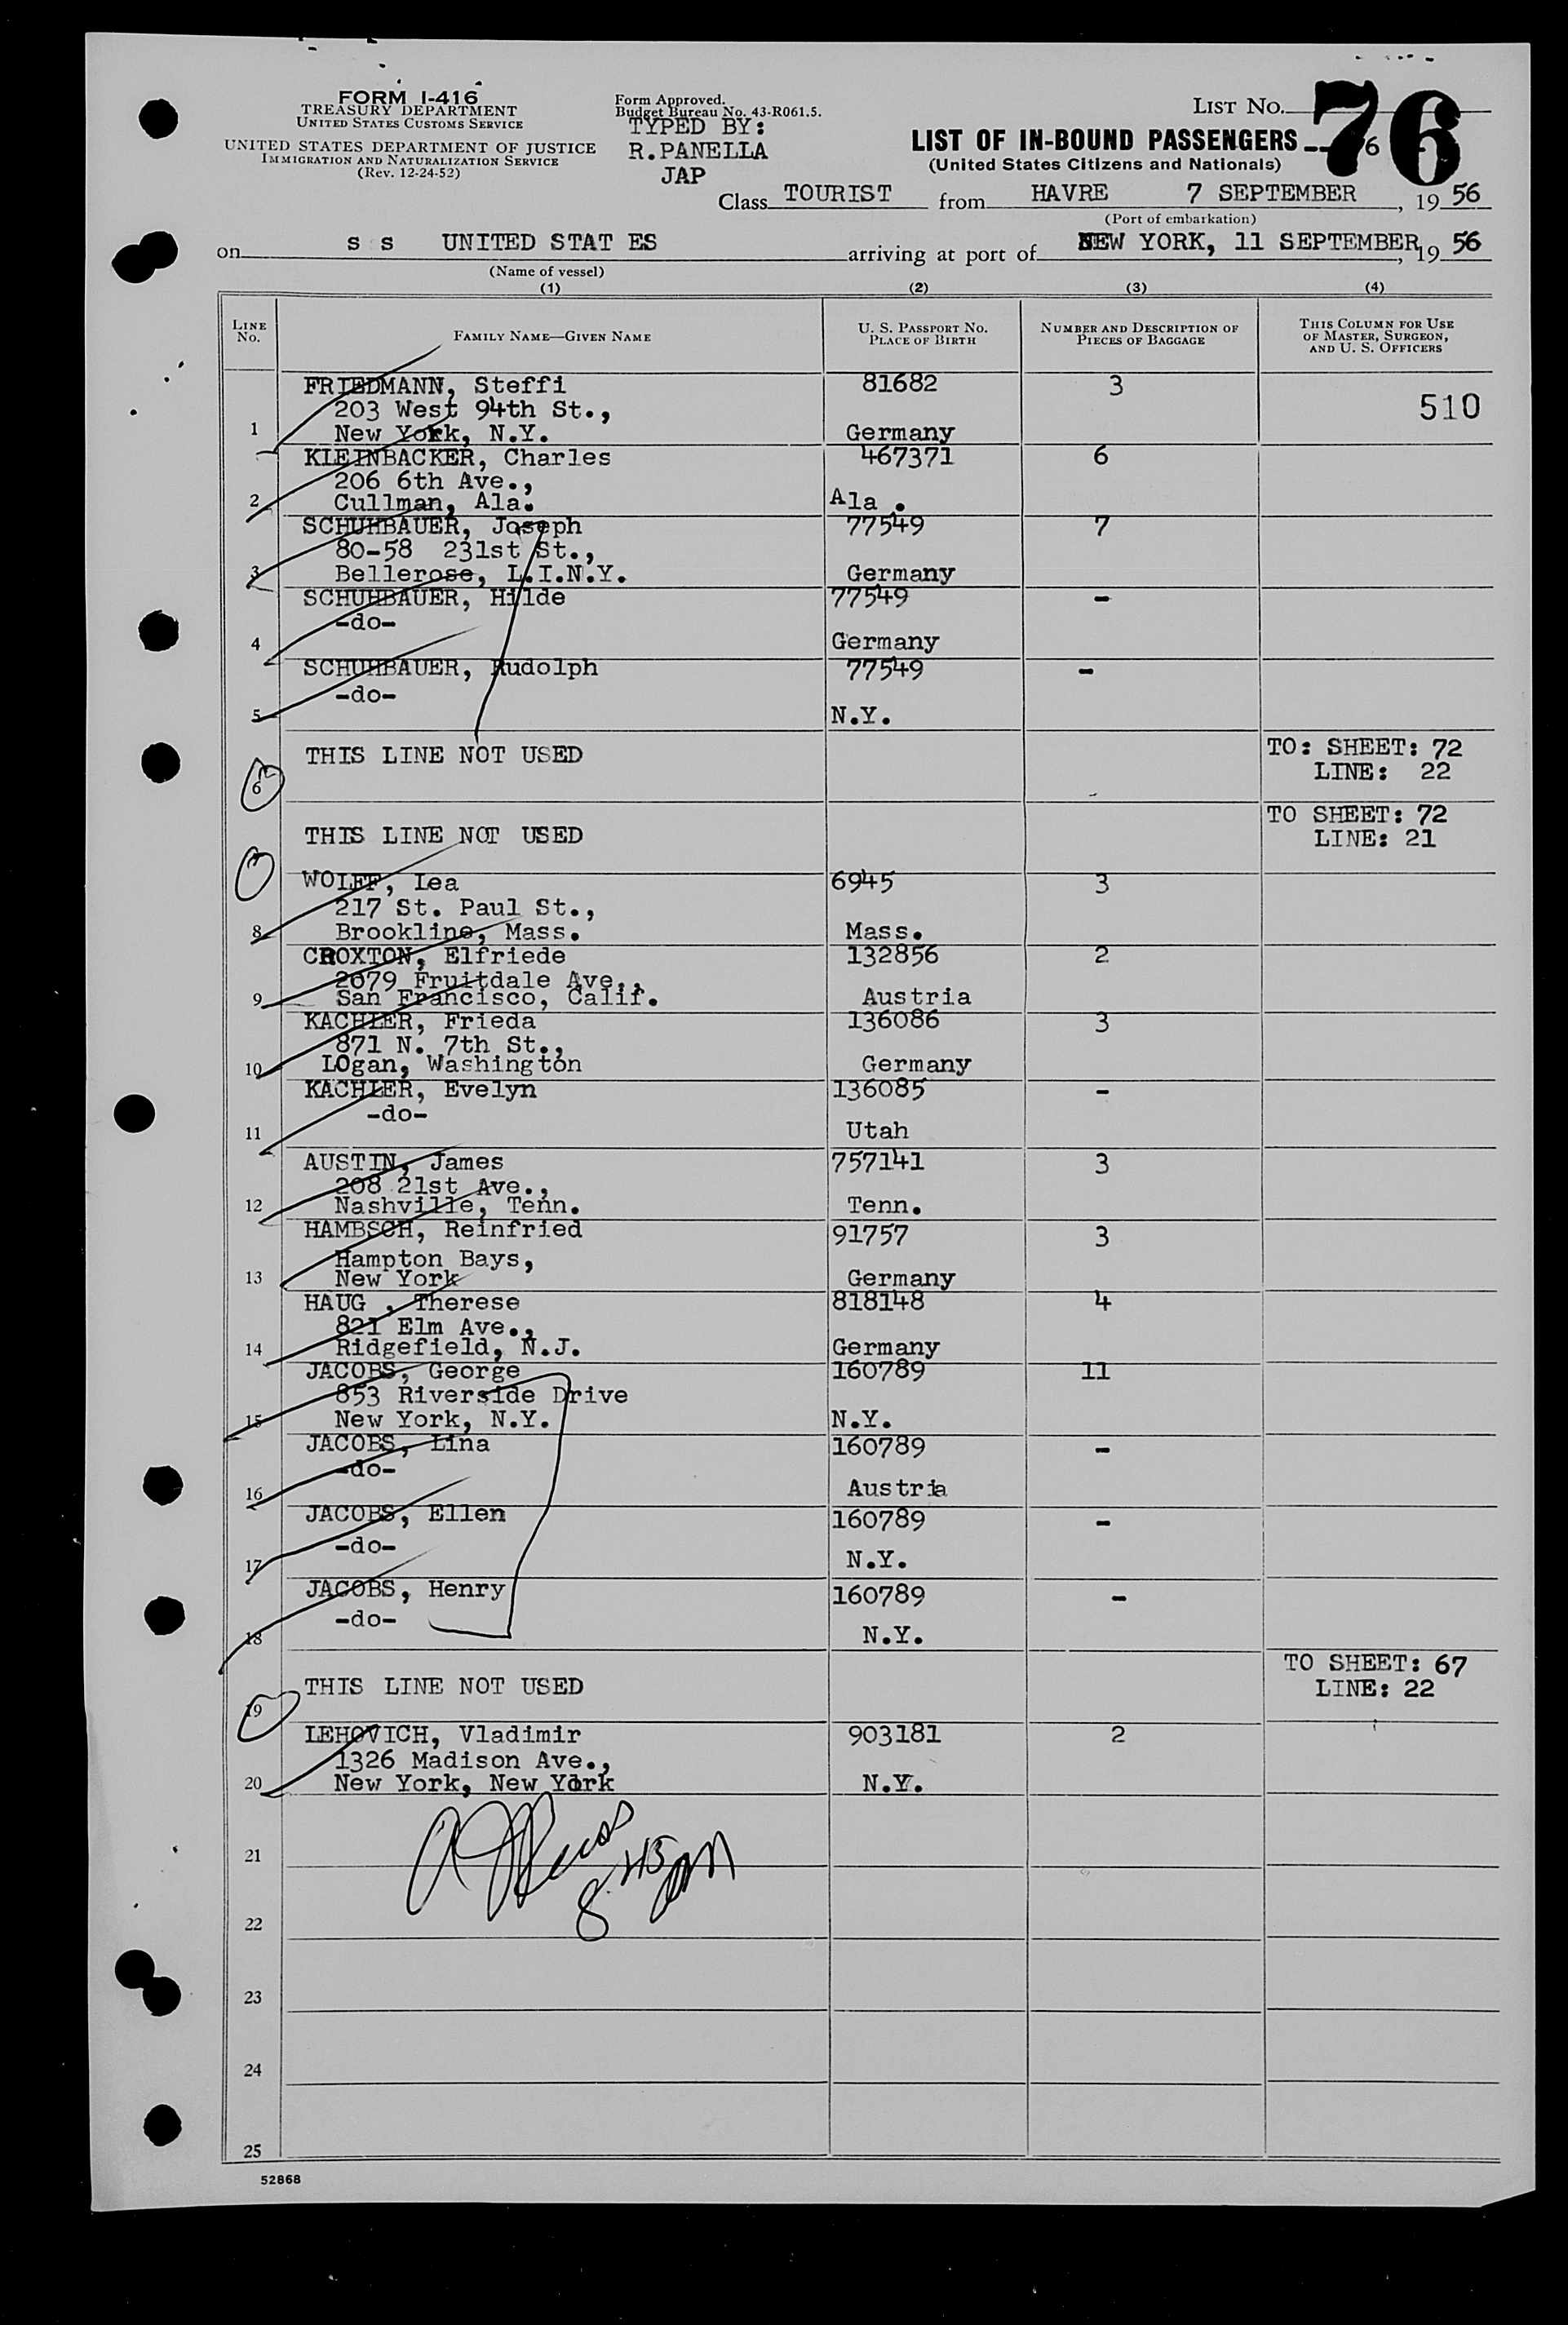 FORM I-416
TREASURY DEPARTMENT
UNITED STATES CUSTOMS SERVICE
UNITED STATES DEPARTMENT OF JUSTICE
IMMIGRATION AND NATURALIZATION SERVICE
(Rev. 12-24-52)
Form Approved.
Budget Bureau No. 43-R061.5.
TYPED BY:
R.PANELLA
JAP
LIST NO. 76
LIST OF IN-BOUND PASSENGERS 6
(United States Citizens and Nationals)
Class TOURIST from HAVRE 7 SEPTEMBER, 1956
(Port of embarkation)
on s s UNITED STAT ES arriving at port of NEW YORK, 11 SEPTEMBER, 1956
(Name of vessel)
(1) (2) (3) (4)
LINE NO. FAMILY NAME—GIVEN NAME U. S. PASSPORT NO. PLACE OF BIRTH NUMBER AND DESCRIPTION OF PIECES OF BAGGAGE THIS COLUMN FOR USE OF MASTER, SURGEON, AND U. S. OFFICERS
FRIEDMANN, Steffi 81682 3
203 West 94th St., 510
1 New York, N.Y. Germany
KLEINBACKER, Charles 467371 6
206 6th Ave.,
2 Cullman, Ala. Ala .
SCHUHBAUER, Joseph 77549 7
80-58 231st St.,
3 Bellerose, L.I.N.Y. Germany
SCHUHBAUER, Hilde 77549 -
-do-
4 Germany
SCHUHBAUER, Rudolph 77549 -
-do-
5 N.Y.
THIS LINE NOT USED TO: SHEET: 72
6 LINE: 22
TO SHEET: 72
THIS LINE NOT USED LINE: 21
7
WOLFF, Lea 6945 3
217 St. Paul St.,
8 Brookline, Mass. Mass.
CROXTON, Elfriede 132856 2
2079 Fruitdale Ave.,
9 San Francisco, Calif. Austria
KACHLER, Frieda 136086 3
871 N. 7th St.,
10 LOgan, Washington Germany
KACHLER, Evelyn 136085 -
-do-
11 Utah
AUSTIN, James 757141 3
208 21st Ave.,
12 Nashville, Tenn. Tenn.
HAMBSCH, Reinfried 91757 3
Hampton Bays,
13 New York Germany
HAUG , Therese 818148 4
821 Elm Ave.,
14 Ridgefield, N.J. Germany
JACOBS, George 160789 11
853 Riverside Drive
15 New York, N.Y. N.Y.
JACOBS, Lina 160789 -
-do-
16 Austria
JACOBS, Ellen 160789 -
-do-
17 N.Y.
JACOBS, Henry 160789 -
-do-
18 N.Y.
TO SHEET: 67
THIS LINE NOT USED LINE: 22
19
LEHOVICH, Vladimir 903181 2
1326 Madison Ave.,
20 New York, New York N.Y.
21
8:45 AM
22
23
24
25
52868